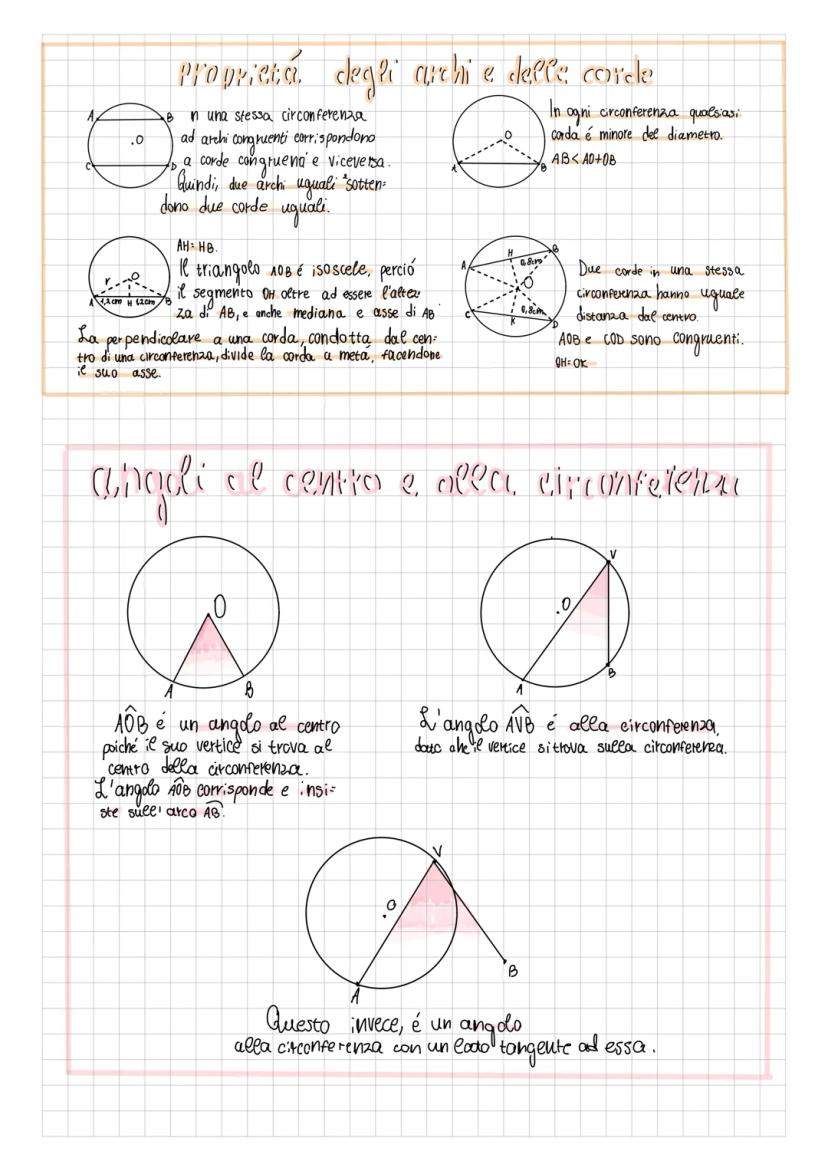 Proprietá degli archi e delle corde
A B
.O
C D
n una stessa circonferenza
ad archi congruenti corrispondono
a corde congruenti e viceversa.
Quindi, due archi uguali sotten=
dono due corde uguali.
O
A B
In ogni circonferenza qualsiasi
corda é minore del diametro.
AB<AO+OB
r O
A 1,2cm H 1,2cm B
AH=HB.
Il triangolo AOB é isoscele, perció
il segmento OH oltre ad essere l'altez
za di AB, e anche mediana e asse di AB
La perpendicolare a una corda, condotta dal cen=
tro di una circonferenza, divide la corda a metá, facendone
il suo asse.
H B
A 0,8cm
O
C 0,8cm
K D
Due corde in una stessa
circonferenza hanno uguale
distanza dal centro.
AOB e COD sono congruenti.
OH=OK
angoli al centro e alla circonferenza
O
A B
AÔB é un angolo al centro
poiché il suo vertice si trova al
centro della circonferenza.
L'angolo AÔB corrisponde e insi=
ste sull'arco AB.
V
.O
B
A
L'angolo AVB é alla circonferenza,
dato che il vertice si trova sulla circonferenza.
V
.O
B
A
Questo invece, é un angolo
alla circonferenza con un lato tangente ad essa.